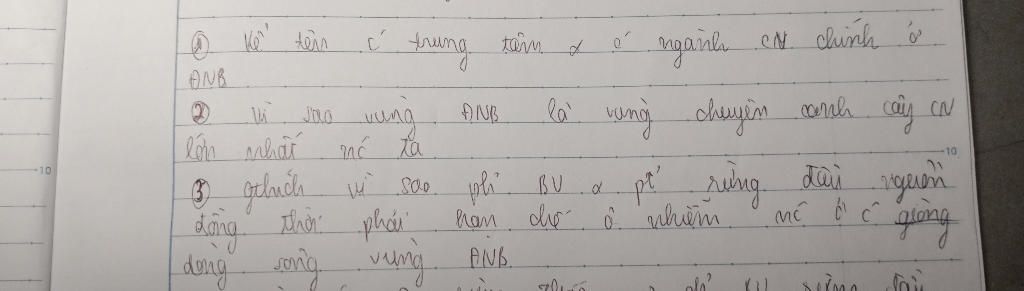 ① Kể tên ć trung tâm & ć ngành CN chính ở
ĐNB
② Vì sao vùng ĐNB là vùng chuyên canh cây CN
lớn nhất nć ta
③ gthích vì sao phỉ BV & pt' rừng đầu nguồn
đồng thời phải hạn chế ô nhiễm nć ở ć giòng
dòng sông vùng ĐNB